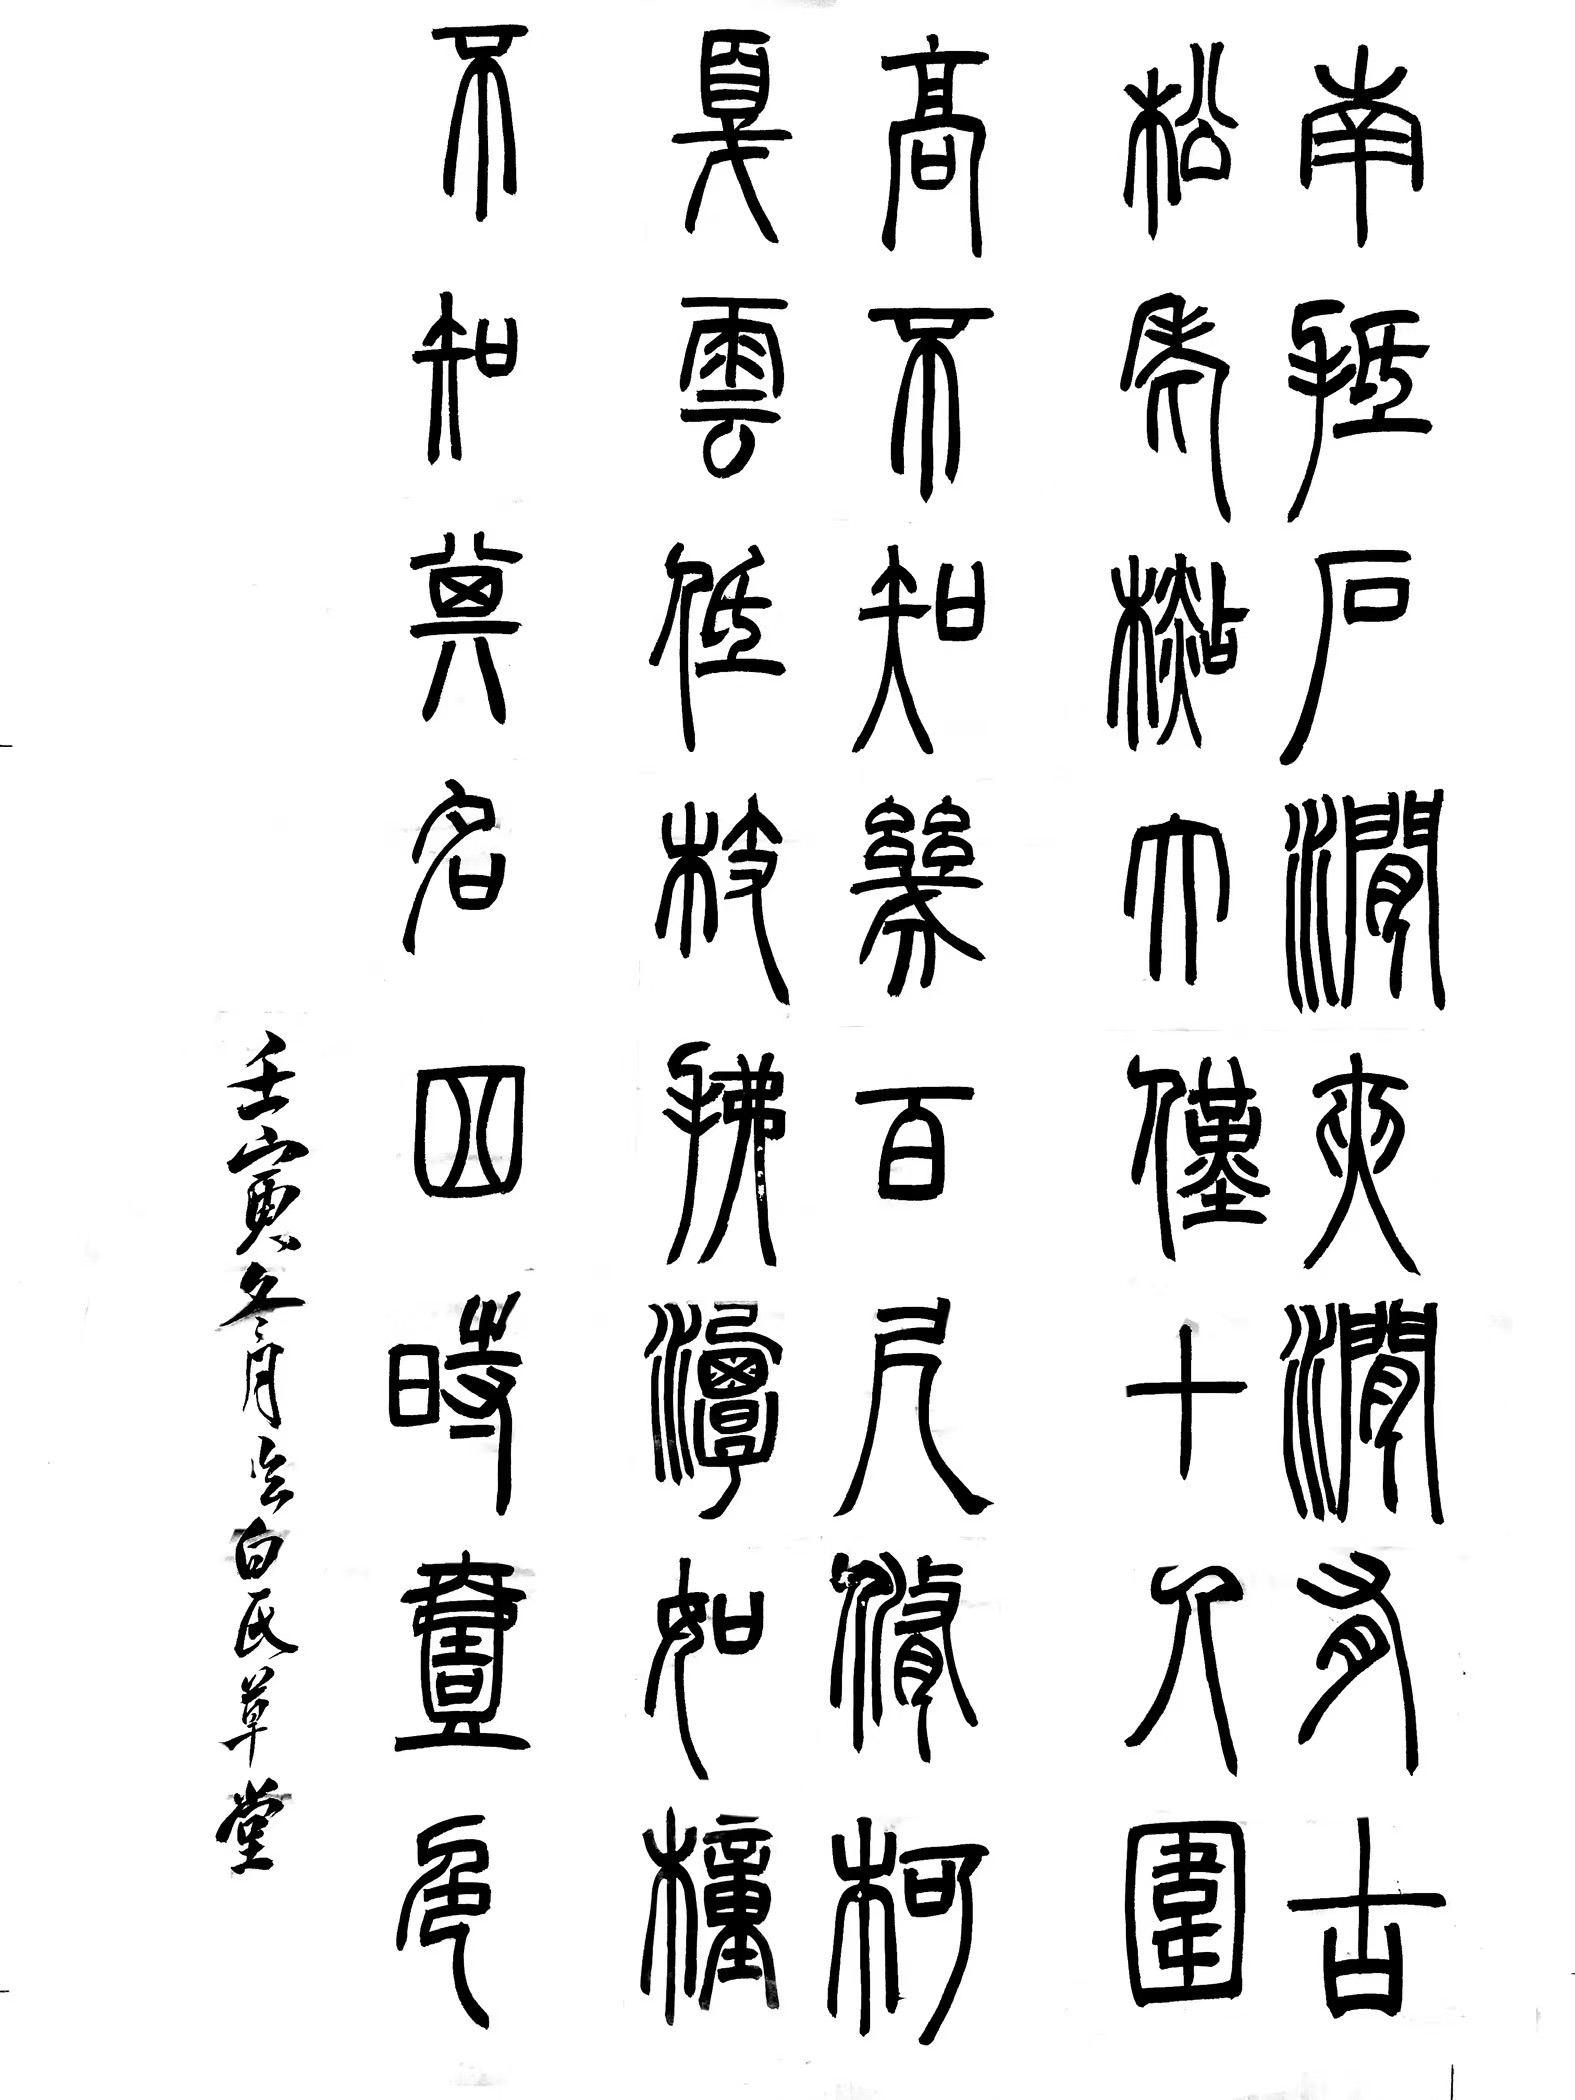 南抵石澗夾澗有古
松老檆大僅十人圍
高不知幾百尺脩柯
戛雲低枝拂潭如橦
不知其名四時壹色
壬寅冬月白氏草堂